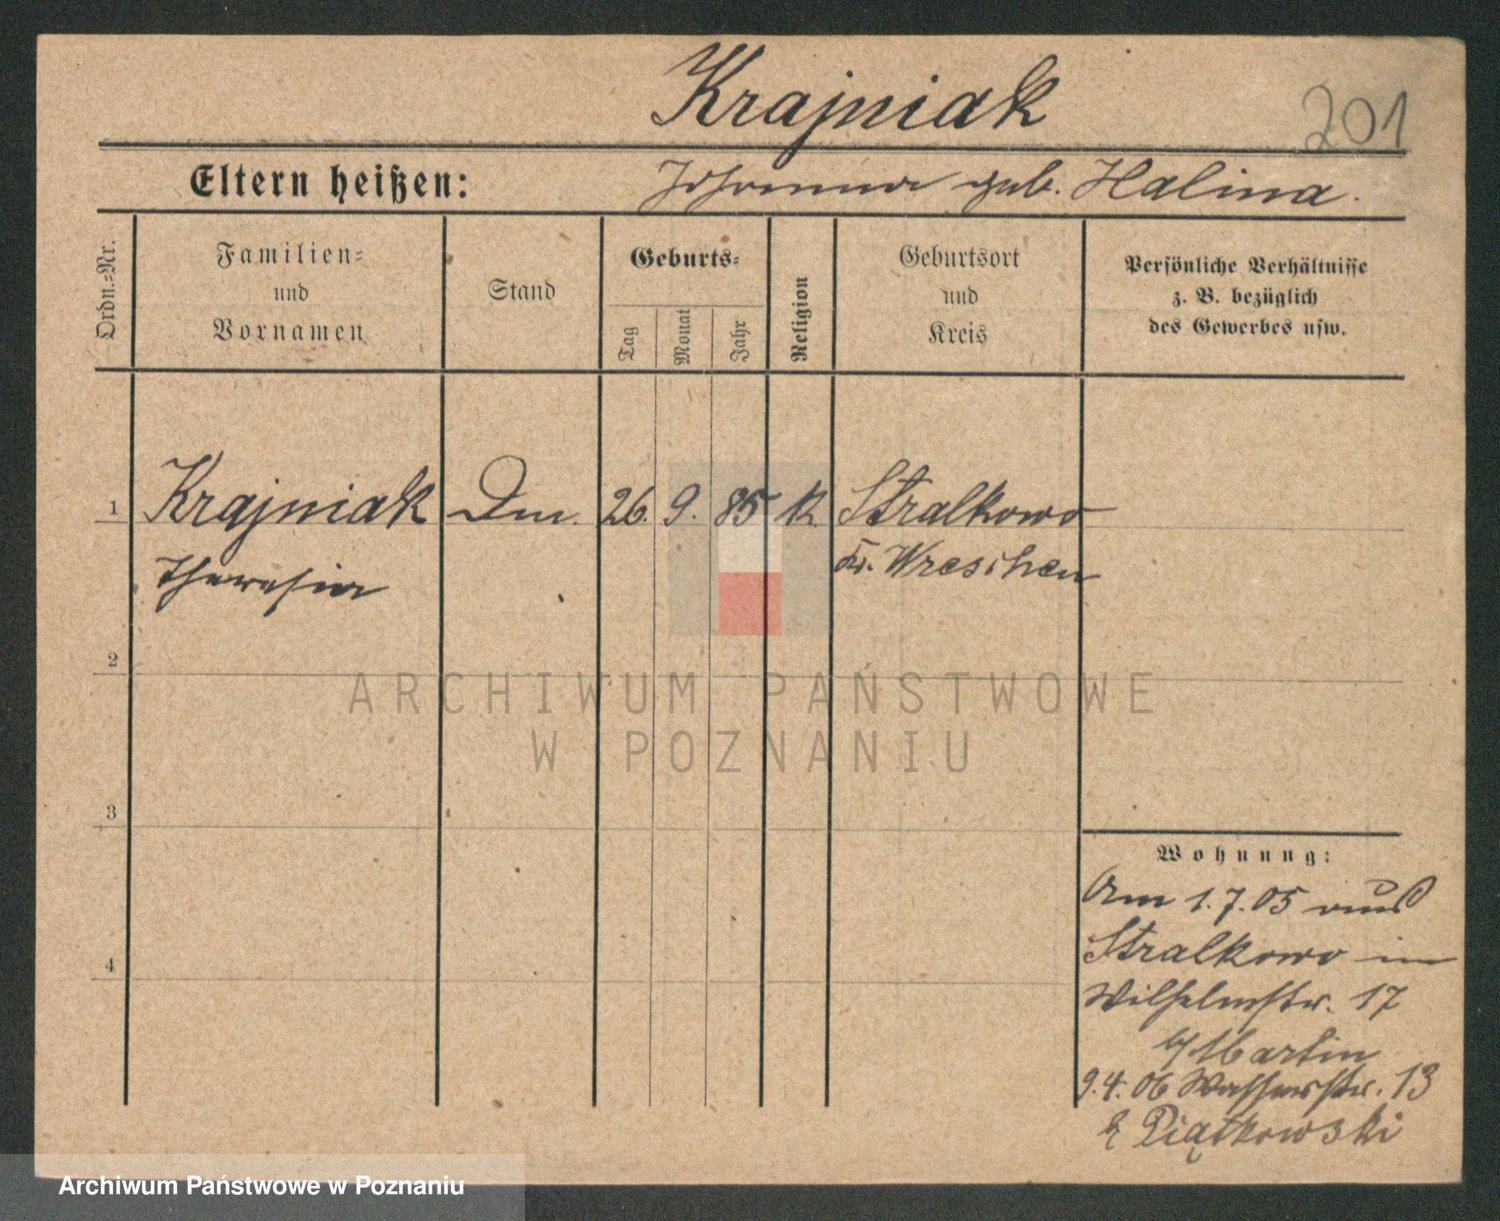 Krajniak
201
Eltern heißen: Johanna geb. Halina.
Ordn.-Nr.
Familien-
und
Vornamen
Stand
Geburts-
Tag
Monat
Jahr
Religion
Geburtsort
und
Kreis
Persönliche Verhältnisse
z. B. bezüglich
des Gewerbes usw.
1 Krajniak Dm. 26. 9. 85 K Stralkowo
Theresia Kr. Wreschen
2
3
4
Wohnung:
Am 1.7.05 aus
Stralkowo in
Wilhelmstr. 17
b/ Martin
9.4.06 Wasserstr. 13
Piątkowski
ARCHIWUM PAŃSTWOWE
W POZNANIU
Archiwum Państwowe w Poznaniu